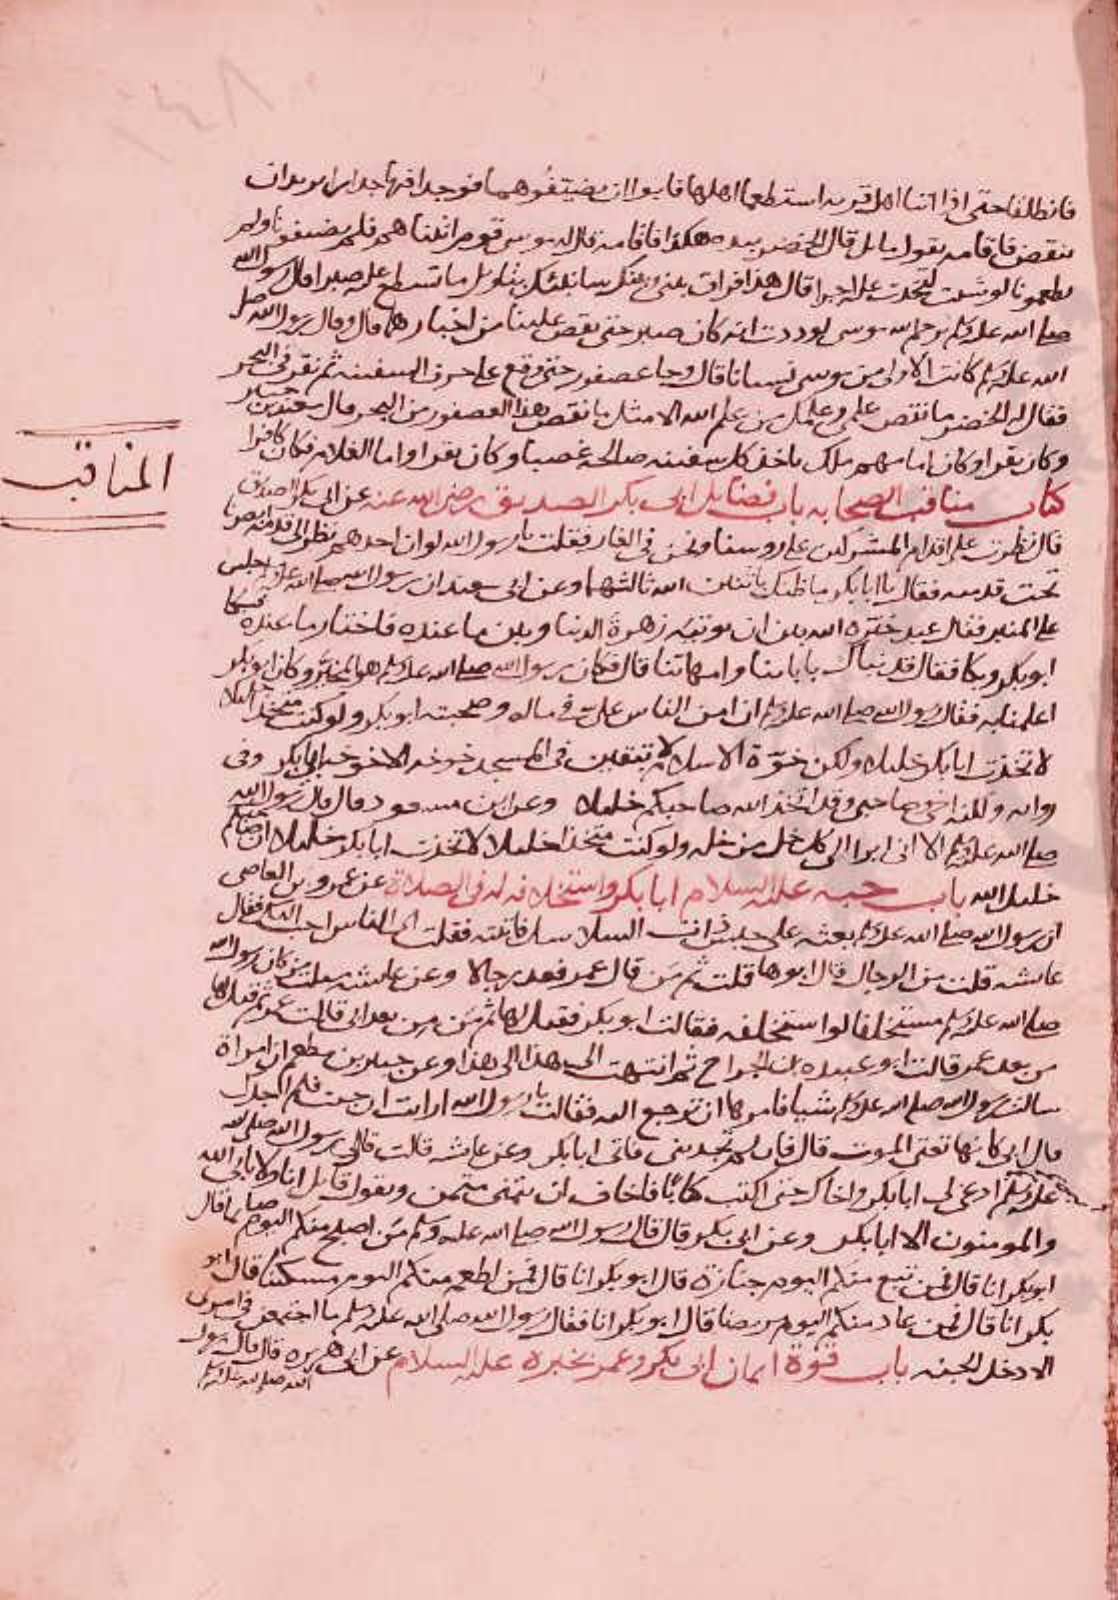 فانطلقا حتى اذا اتيا اهل قريه استطعما اهلها فابوا ان يضيفوهما فوجدا فيها جدارا يريد ان
ينقض فاقامه يقول مايل قال الخضر بيده هكذا فاقامه قال له موسى قوم اتيناهم فلم يضيفونا ولم
يطعمونا لو شيت لتخذت عليه اجرا قال هذا فراق بيني وبينك سانبئك بتاويل ما لم تستطع عليه صبرا قال رسول الله
صلى الله عليه وسلم يرحم الله موسى لوددت انه كان صبر حتى يقص علينا من اخبارهما قال وقال رسول الله صلى
الله عليه وسلم كانت الاولى من موسى نسيانا قال وجا عصفور حتى وقع على حرف السفينه ثم نقر في البحر
فقال له الخضر ما نقص علمي وعلمك من علم الله الا مثل ما نقص هذا العصفور من البحر قال سعيد بن جبير
وكان يقرا وكان امامهم ملك ياخذ كل سفينه صالحه غصبا وكان يقرا واما الغلام فكان كافرا
المناقب
كتاب مناقب الصحابه باب فضايل ابي بكر الصديق رضي الله عنه عن ابي بكر الصديق
قال نظرت على اقدام المشركين على روسنا ونحن في الغار فقلت يا رسول الله لو ان احدهم نظر الى قدميه ابصرنا
تحت قدميه فقال يا ابا بكر ما ظنك باثنين الله ثالثهما وعن ابي سعيد ان رسول الله صلى الله عليه وسلم جلس
على المنبر فقال عبد خيره الله بين ان يوتيه زهرة الدنيا وبين ما عنده فاختار ما عنده فبكا
ابو بكر وبكا فقال فديناك باباينا وامهاتنا قال فكان رسول الله صلى الله عليه وسلم هو المخير وكان ابو بكر
اعلمنا به فقال رسول الله صلى الله عليه وسلم ان امن الناس علي في ماله وصحبته ابو بكر ولو كنت متخذا خليلا
لاتخذت ابا بكر خليلا ولكن خوة الاسلام لا تبقين في المسجد خوخه الا خوخه ابي بكر وفي
روايه ولكنه اخي وصاحبي وقد اتخذ الله صاحبكم خليلا وعن ابن مسعود قال قال رسول الله
صلى الله عليه وسلم الا اني ابرا الى كل خل من خله ولو كنت متخذا خليلا لاتخذت ابا بكر خليلا ان صاحبكم
خليل الله باب حبه عليه السلام ابا بكر واستخلافه له في الصلاة عن عمرو بن العاصي
ان رسول الله صلى الله عليه وسلم بعثه على جيش ذات السلاسل فاتيته فقلت اي الناس احب اليك فقال
عايشه قلت من الرجال قال ابوها قلت ثم من قال عمر فعد رجالا وعن عايشه سيلت من كان رسول الله
صلى الله عليه وسلم مستخلفا لو استخلفه فقالت ابو بكر فقيل لها ثم من من بعد ابي قالت عمر ثم قيل لها
من بعد عمر قالت ابو عبيده ابن الجراح ثم انتهت الى هذا الى هذا وعن جبير بن مطعم ان امراة
سالت رسول الله صلى الله عليه وسلم شيا فامرها ان ترجع اليه فقالت يا رسول الله ارايت ان جيت فلم اجدك
قال ابي كانها تعني الموت قال فان لم تجديني فاتي ابا بكر وعن عايشه قالت قال لي رسول الله صلى الله
عليه وسلم ادعي لي ابا بكر واخاك حتى اكتب كتابا فاخاف ان يتمنى متمن ويقول قايل انا ولا يابى الله
والمومنون الا ابا بكر وعن ابي بكر قال قال رسول الله صلى الله عليه وسلم من اصبح منكم اليوم صايما قال
ابو بكر انا قال فمن تبع منكم اليوم جنازة قال ابو بكر انا قال فمن اطعم منكم اليوم مسكينا قال ابو
بكر انا قال فمن عاد منكم اليوم مريضا قال ابو بكر انا فقال رسول الله صلى الله عليه وسلم ما اجتمعن في امرئ
الا دخل الجنه باب قوة ايمان ابي بكر وعمر بخبره عليه السلام عن ابي هريره قال قال رسول
الله صلى الله عليه وسلم